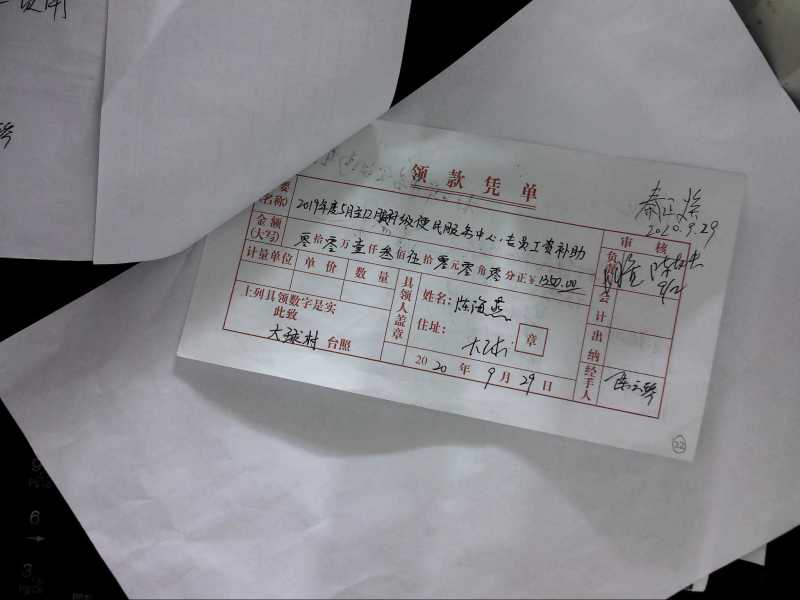 领款凭单
2020.9.29
摘要(名称) 2019年度5月至12月村级便民服务中心专员工资补助
审核
金额(大写) 零拾零万壹仟叁佰伍拾零元零角零分正￥1350.00
负责
计量单位 单价 数量
具领人盖章
姓名: 陈海燕
会计
上列具领数字是实
此致
住址:
章
出纳
大球村 台照
2020年9月29日
经手人
22